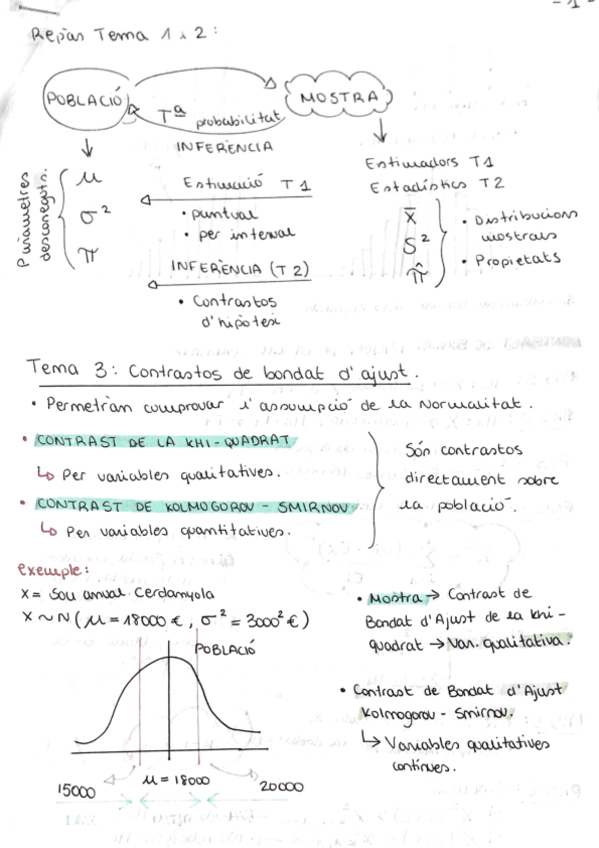 - 1 -
Repàs Tema 1 i 2:
POBLACIÓ
Tª probabilitat
MOSTRA
INFERÈNCIA
Paràmetres desconeguts.
μ
σ²
π
Estimació T1
• puntual
• per interval
INFERÈNCIA (T2)
• Contrastos
d'hipòtesi
Estimadors T1
Estadístics T2
x̄
S²
π̂
• Distribucions
mostrals
• Propietats
Tema 3: Contrastos de bondat d'ajust.
• Permetràn comprovar l'assumpció de la Normalitat.
• CONTRAST DE LA KHI-QUADRAT
↳ Per variables qualitatives.
• CONTRAST DE KOLMOGOROV - SMIRNOV
↳ Per variables quantitatives.
Són contrastos
directament sobre
la població.
exemple:
X = Sou anual Cerdanyola
X ~ N (μ = 18000 €, σ² = 3000² €)
POBLACIÓ
15000
μ = 18000
20000
• Mostra → Contrast de
Bondat d'Ajust de la khi-
quadrat → Var. qualitativa.
• Contrast de Bondat d'Ajust
Kolmogorov - Smirnov.
↳ Variables qualitatives
contínues.